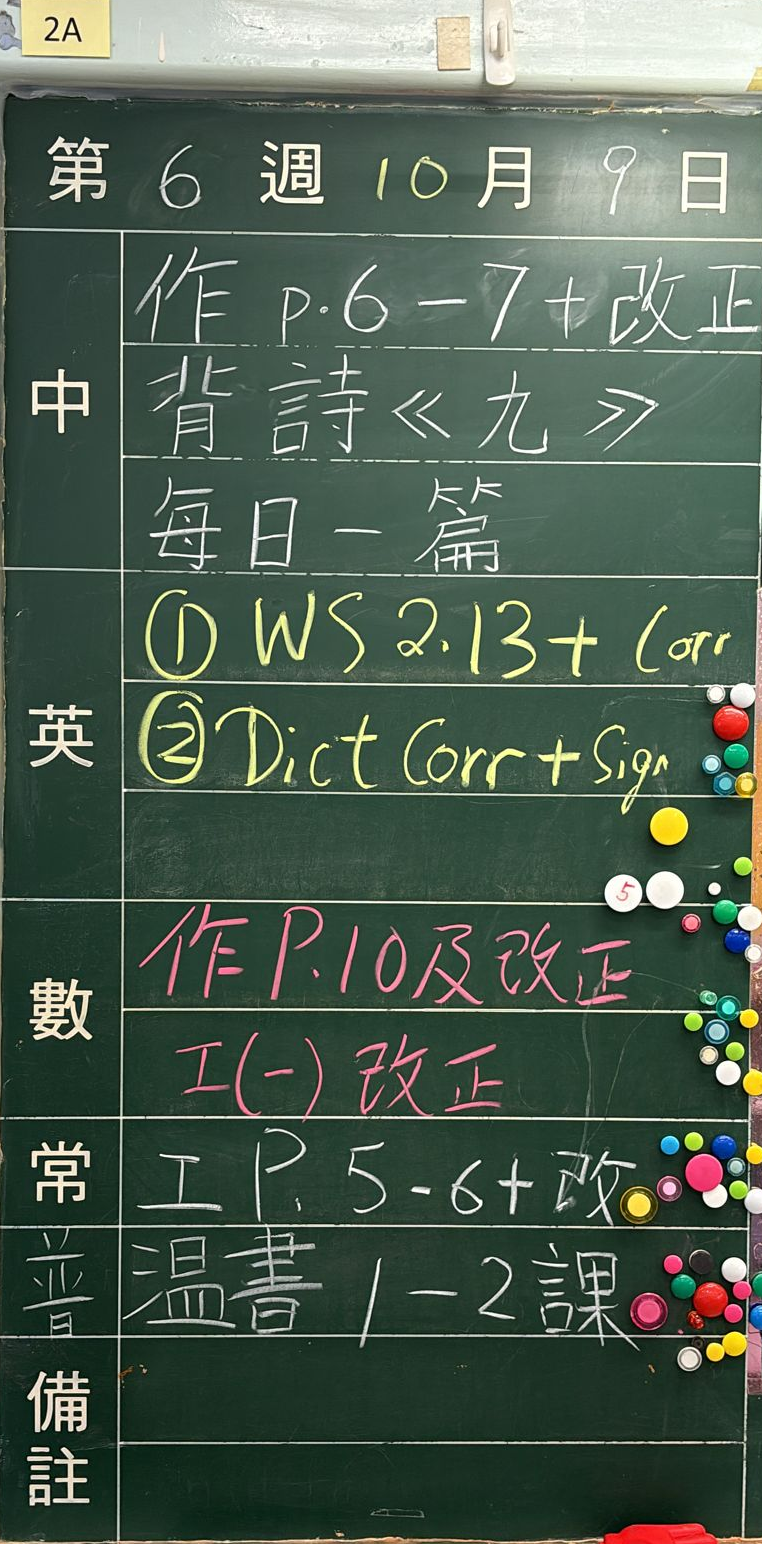 2A
第 6 週 10 月 9 日
中
作 p.6-7+改正
背詩《九》
每日一篇
英
① WS 2.13+ Corr
② Dict Corr + Sign
5
數
作 P.10及改正
工(一) 改正
常
工 P.5-6+改
普
温書 1-2課
備註